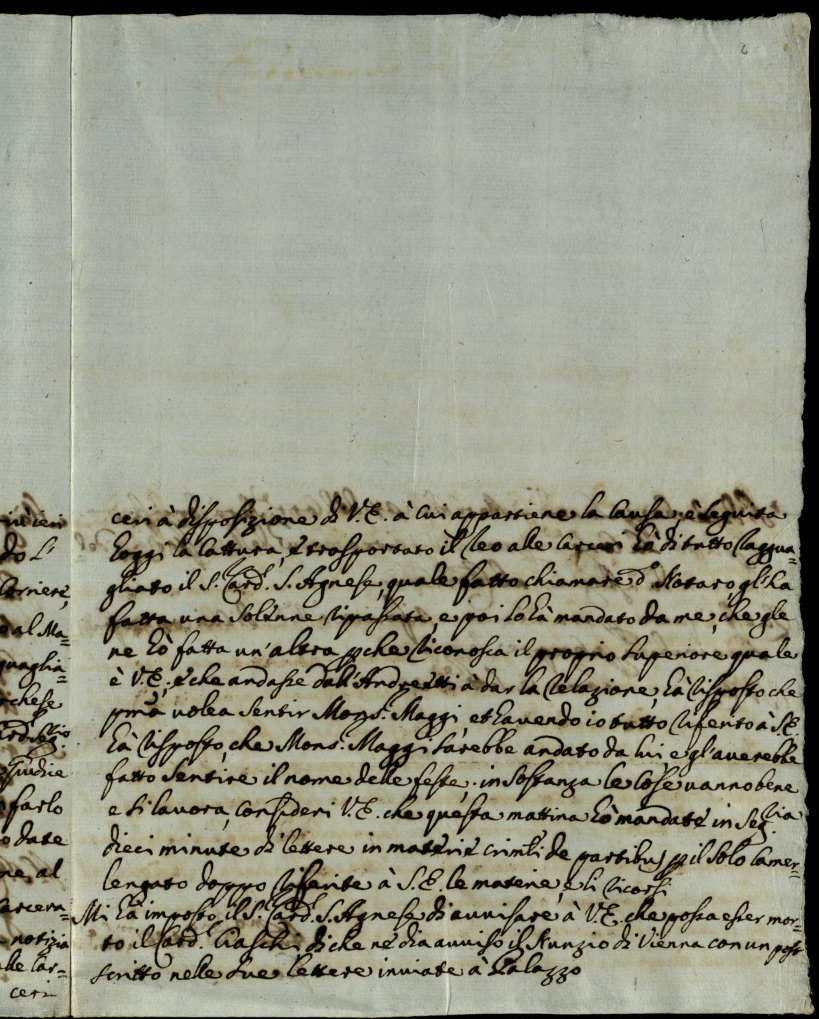 6
ceri à disposizione di V.E. à cui appartiene la Causa; è seguita
hoggi la Cattura, e trasportato il Reo alle Carceri hà di tutto raggua=
gliato il S. Card. S. Agnese, quale fatto chiamare d.o Notaro, gl'hà
fatta una solenne ripassata, e poi lo hà mandato da me, che gle
ne hò fatta un'altra pche riconosca il proprio Superiore quale
è V.E., e che andasse dall' à dar la relazione, hà risposto che
pma volea sentir Mons. Maggi, et havendo io tutto riferito à S.E.
hà risposto, che Mons. Maggi sarebbe andato da lui, e gl'averebbe
fatto sentire il nome delle feste; in sostanza le cose vanno bene
e si lavora, consideri V.E. che questa mattina hò mandate in Seg.ria
dieci minute di lettere in materie crimli de partibus p il solo Camer=
lengato doppo riferite à S.E. le materie, e li ricorsi
Mi hà imposto il S. Card. S. Agnese di avvisare à V.E. che possa esser mor=
to il Card. di che ne dia avviso il Nunzio di Vienna con un post
scritto nelle sue lettere inviate à Palazzo
iu ieri
do L'
Corriere,
e al Ma=
guaglia=
rchese
Giudice
farlo
o date
ne, al
arcera=
notizia
lle Car=
ceri